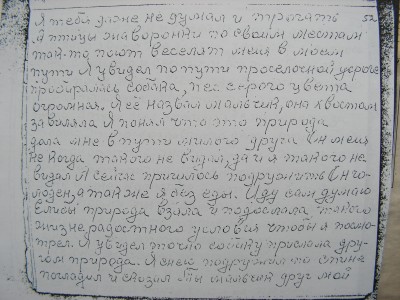 Я тебя даже не думал и трогать 52
А птицы жаворонки по своим местам
так-то поют веселят меня в моем
пути Я увидел по пути проселочной дороге
пробиралась собака, пес серого цвета
огромная. Я её назвал мальчик, она хвостом
завиляла Я понял что это природа
дала мне в пути милого друга Он меня
не когда такого не видил да и я такого не
видал Я сейчас пришлось подружить Он го-
лоден, а так же я без еды. Иду сам думаю
Ели бы природа взяла и подослала такого
жизнерадостного условия чтобы я посмо-
трел. Я увидел точно собаку прислала дру-
гом природа. Я с ней подружил по спине
погладил и сказал Ты мальчик друг мой